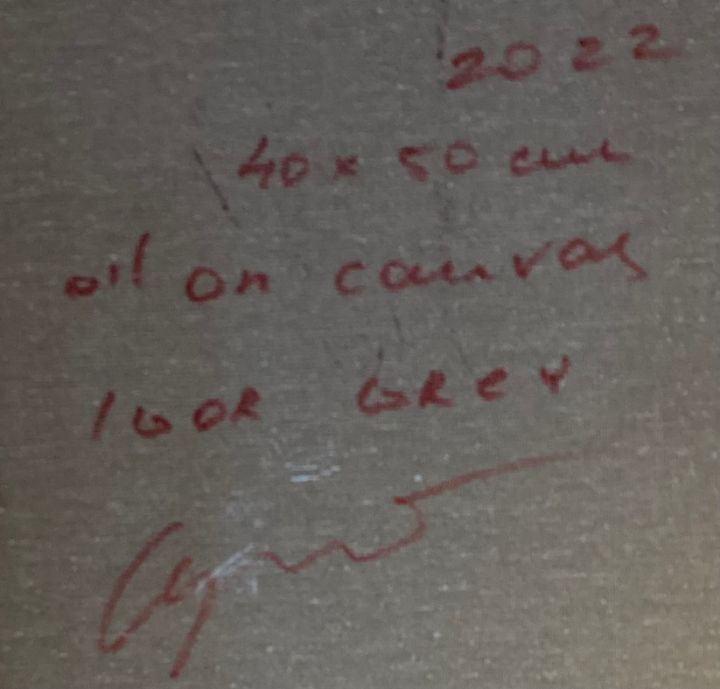 2022
40 x 50 cm
oil on canvas
IGOR GREY